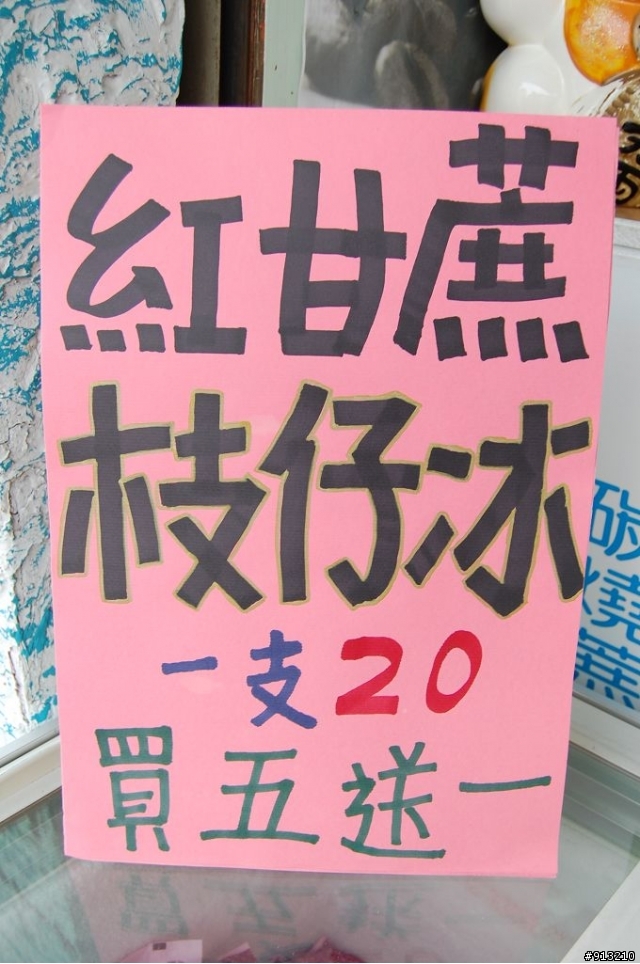 紅甘蔗
枝仔冰
一支20
買五送一
碳
燒
蔗
#913210